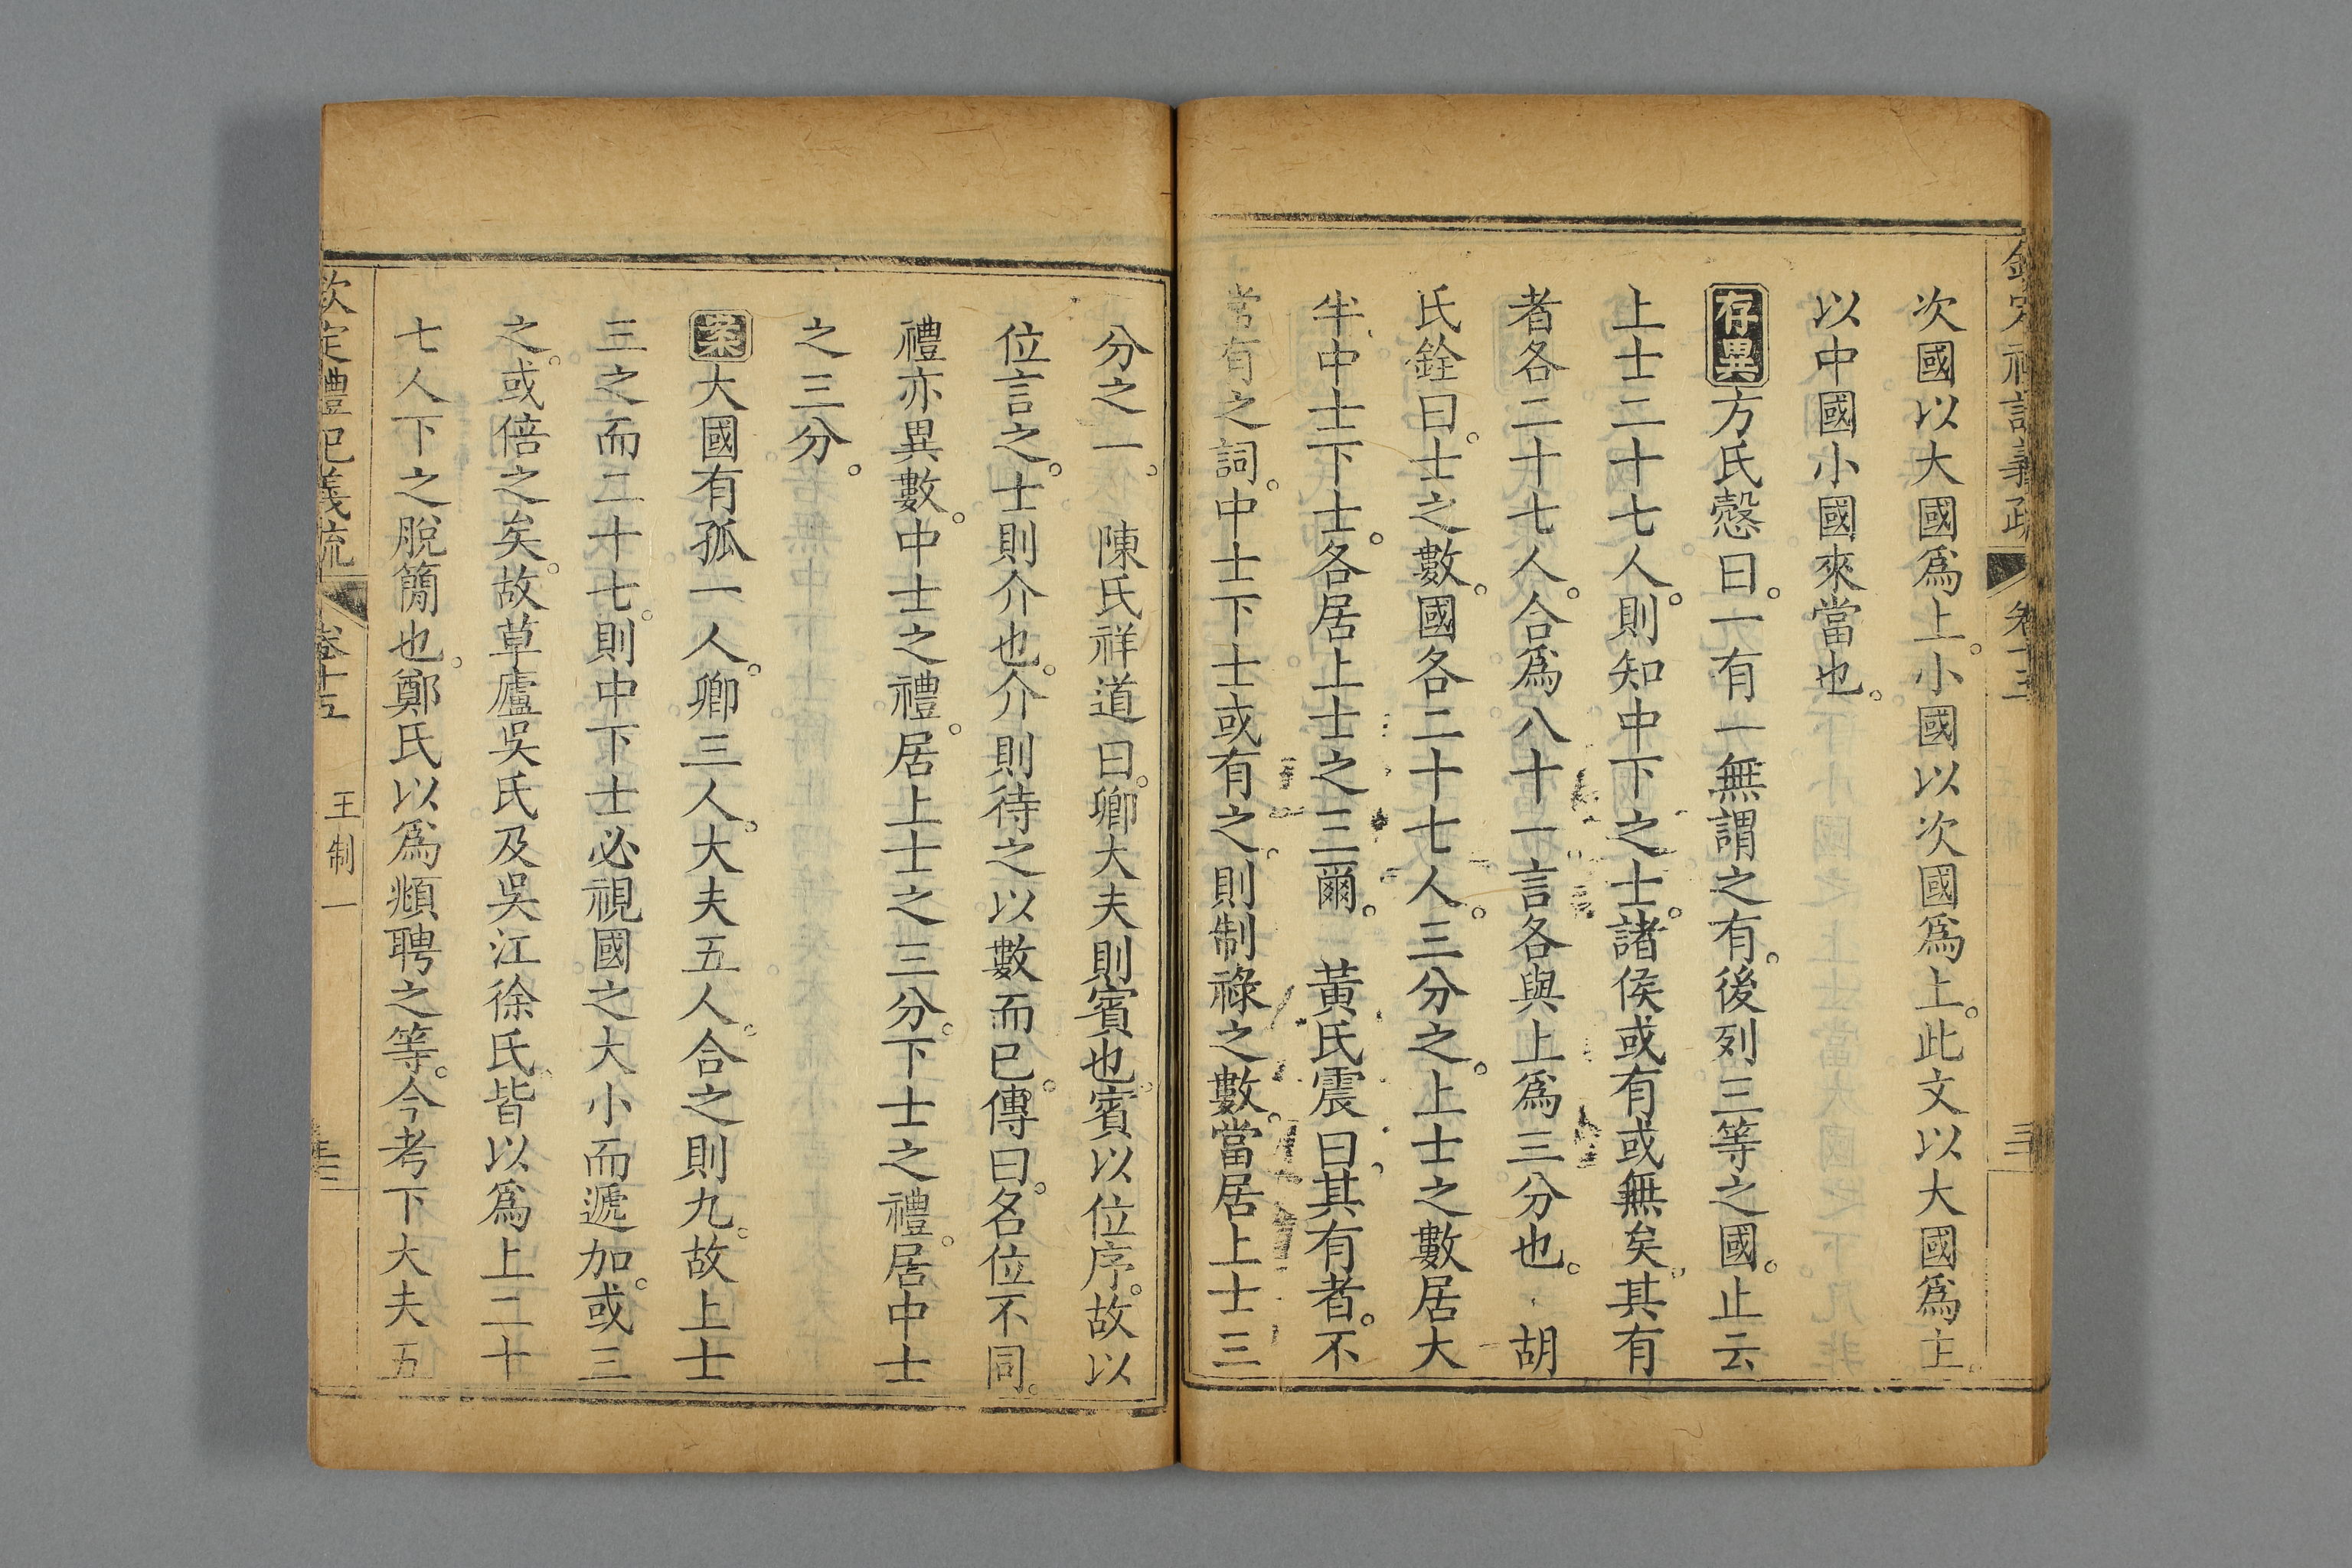 次國以大國爲上。小國以次國爲上。此文以大國爲上。
以中國小國來當也。
存異方氏慤曰。一有一無謂之有。後列三等之國。止云
上士二十七人。則知中下之士。諸侯或有或無矣。其有
者各二十七人。合爲八十一。言各與上爲三分也。胡
氏銓曰。士之數。國各二十七人。三分之。上士之數居大
半、中士下士。各居上士之三爾。黃氏震曰。其有者。不
常有之詞。中士下士或有之。則制祿之數。當居上士三
分之一。陳氏祥道曰。卿大夫則賓也。賓以位序。故以
位言之。士則介也。介則待之以數而已。傳曰。名位不同。
禮亦異數。中士之禮。居上士之三分。下士之禮。居中士
之三分。
案大國有孤一人。卿三人。大夫五人。合之則九。故上士
三之而二十七。則中下士必視國之大小而遞加。或三
之。或倍之矣。故草廬吳氏及吳江徐氏。皆以爲上二十
七人下之脫簡也。鄭氏以爲頫聘之等。今考下大夫五
欽定禮記義疏 卷十五 王制一